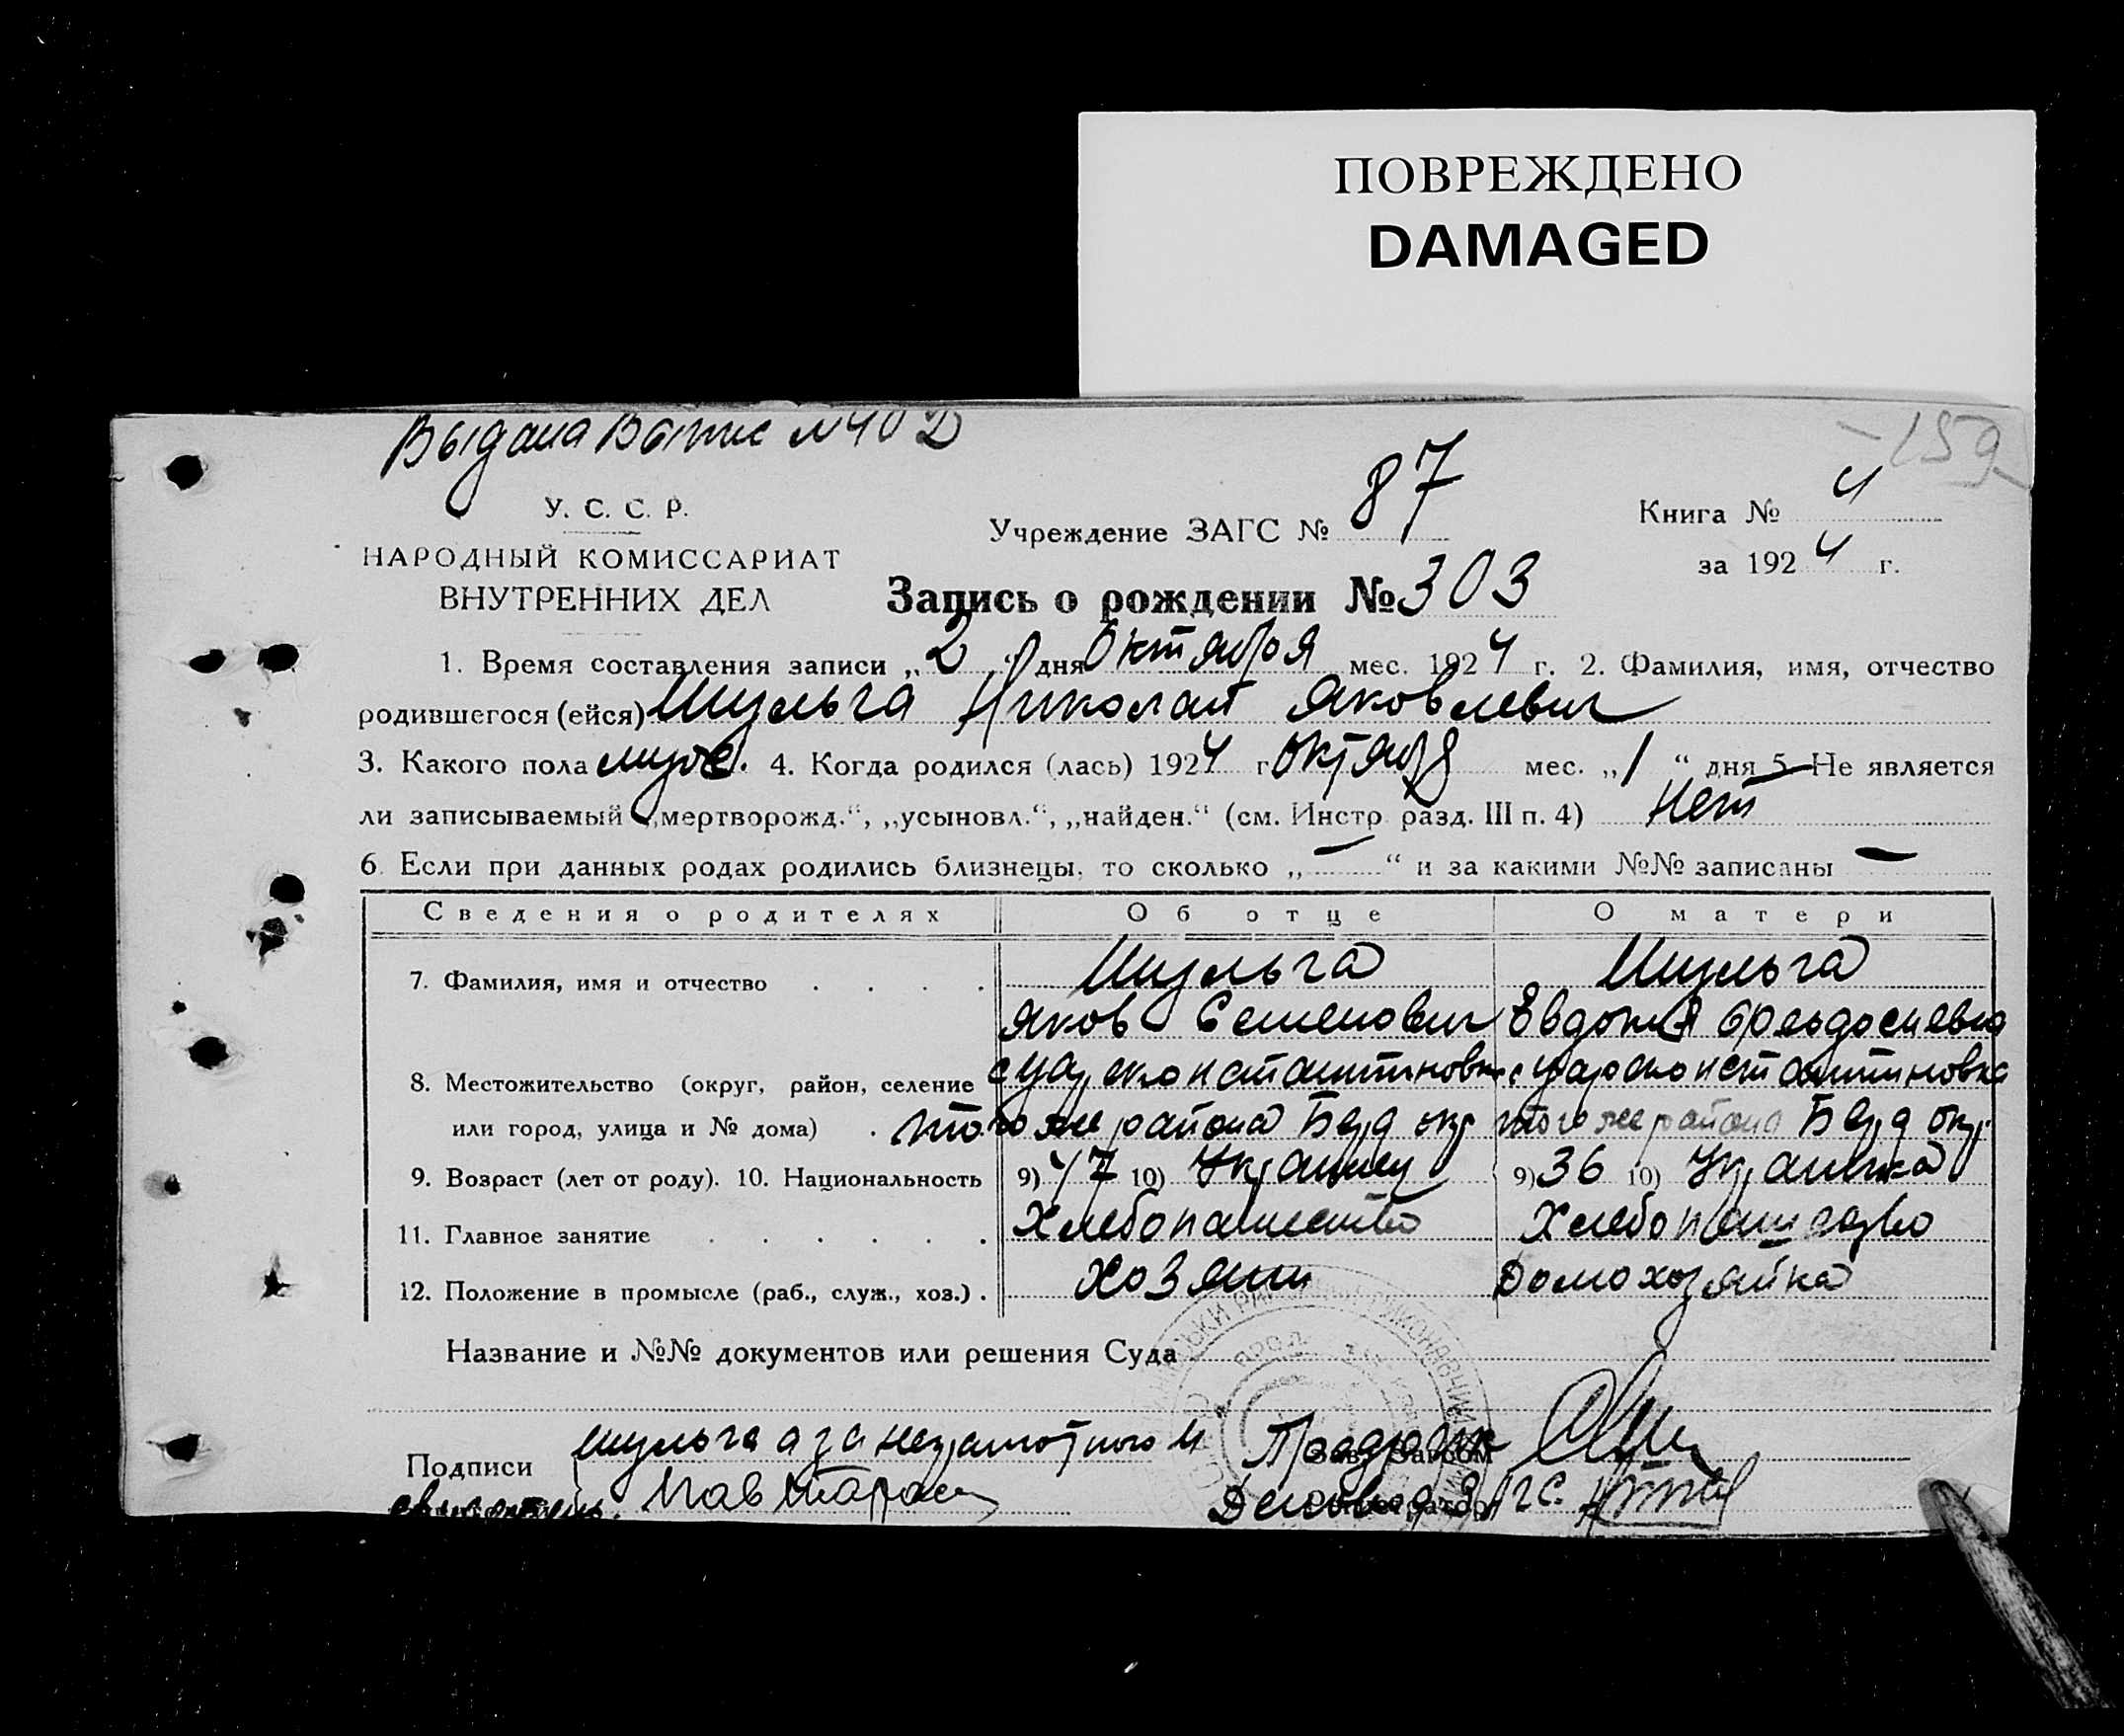 ПОВРЕЖДЕНО
DAMAGED
Выдана №402
-159
У. С. С. Р.
Учреждение ЗАГС № 87
Книга № 4
НАРОДНЫЙ КОМИССАРИАТ
за 1924 г.
ВНУТРЕННИХ ДЕЛ
Запись о рождении № 303
1. Время составления записи „2“ дня Октября мес. 1924 г. 2. Фамилия, имя, отчество
родившегося (ейся) Шульга Николай Яковлевич
3. Какого пола муж. 4. Когда родился (лась) 1924 г. Октября мес. „1“ дня 5. Не является
ли записываемый „мертворожд.“, „усыновл.“, „найден.“ (см. Инстр. разд. III п. 4) Нет
6. Если при данных родах родились близнецы, то сколько „—“ и за какими №№ записаны —
Сведения о родителях Об отце О матери
7. Фамилия, имя и отчество . . . . Шульга Шульга
Яков Семенович Евдокия
8. Местожительство (округ, район, селение
или город, улица и № дома) . того же района Берд окр того же района Берд окр
9. Возраст (лет от роду). 10. Национальность 9) 47 10) Украинец 9) 36 10) Украинка
11. Главное занятие . . . . . . Хлебопашество Хлебопашество
12. Положение в промысле (раб., служ., хоз.) . Хозяин Домохозяйка
Название и №№ документов или решения Суда
Подписи Шульга а за неграмотного
свидетель